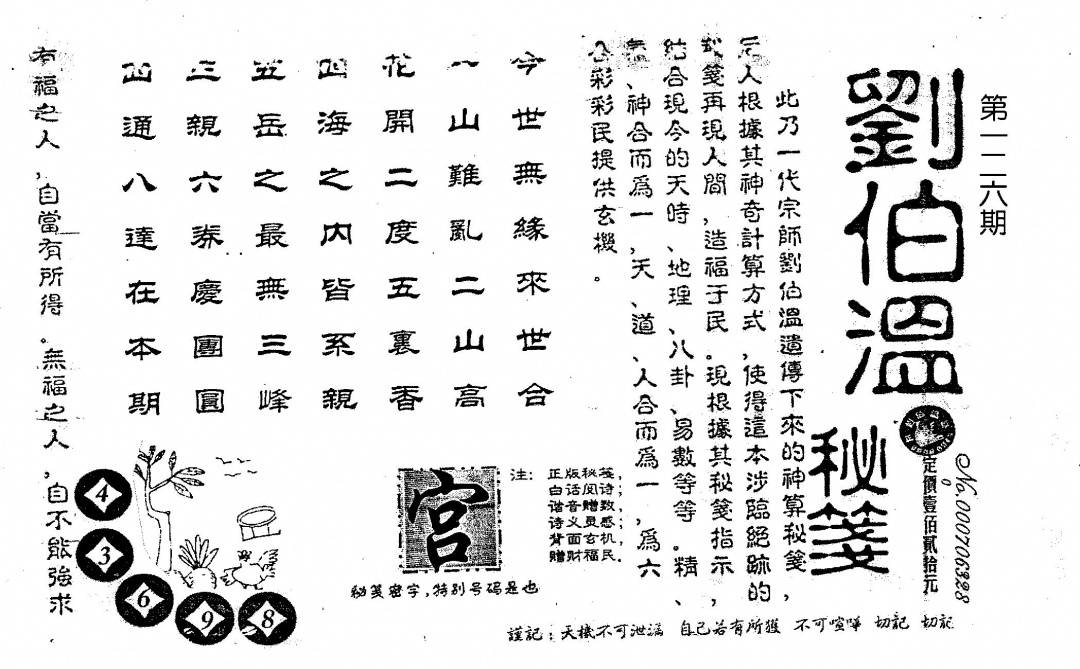 第一二六期
劉伯溫
秘箋
No.000706328
定價壹佰貳拾元
此乃一代宗師劉伯溫遺傳下來的神算秘箋,
人根據其神奇計算方式,使得這本涉臨絕跡的
箋再現人間,造福于民。現根據其秘箋指示,
結合現今的天時、地理、八卦、易數等等。精、
、神合而為一,天、道、人合而為一,為六
合彩彩民提供玄機。
今世無緣來世合
八山難亂二山高
花開二度五裏香
四海之内皆系親
五岳之最無三峰
三親六券慶團圓
四通八達在本期
有福之人,自當有所得。無福之人,自不能強求
注:
正版秘笺,
白话阅诗;
谐音赠数,
诗义灵感;
背面玄机,
赠财福民。
宫
秘笺密字,特别号码是也
4
3
6
9
8
謹記:天機不可泄漏 自己若有所獲 不可喧嘩 切記 切記